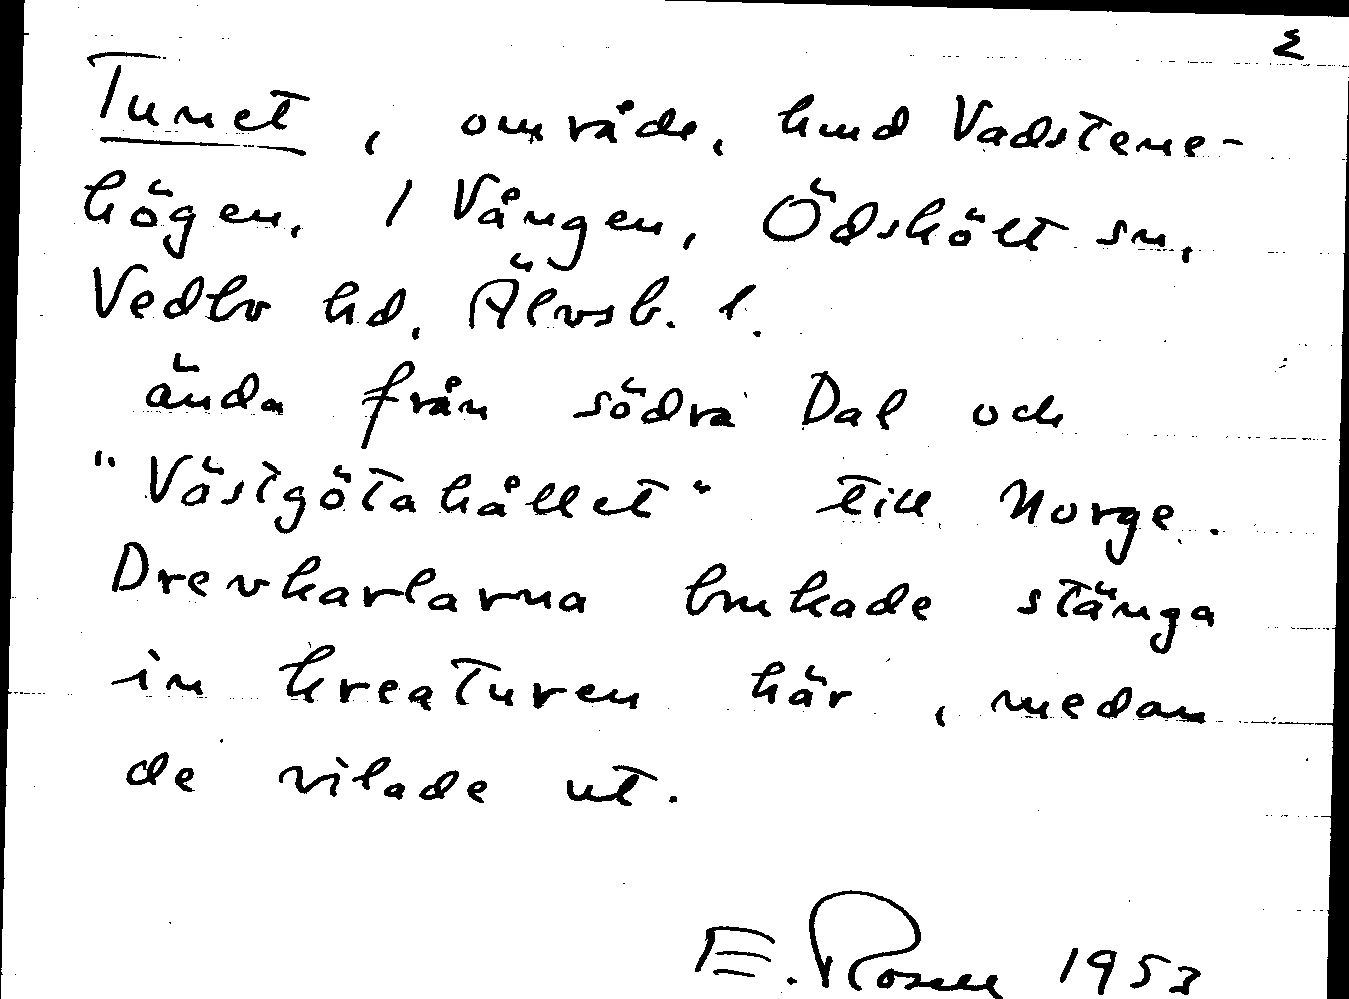 2
Tunet, område, hmd Vadstene-
högen, 1 Vången, Ödskölt sn,
Vedbo hd, Älvsb. l.
ända från södra Dal och
"Västgötahållet" till Norge.
Drevkarlarna brukade stänga
in kreaturen här, medan
de vilade ut.
E. Rosell 1953